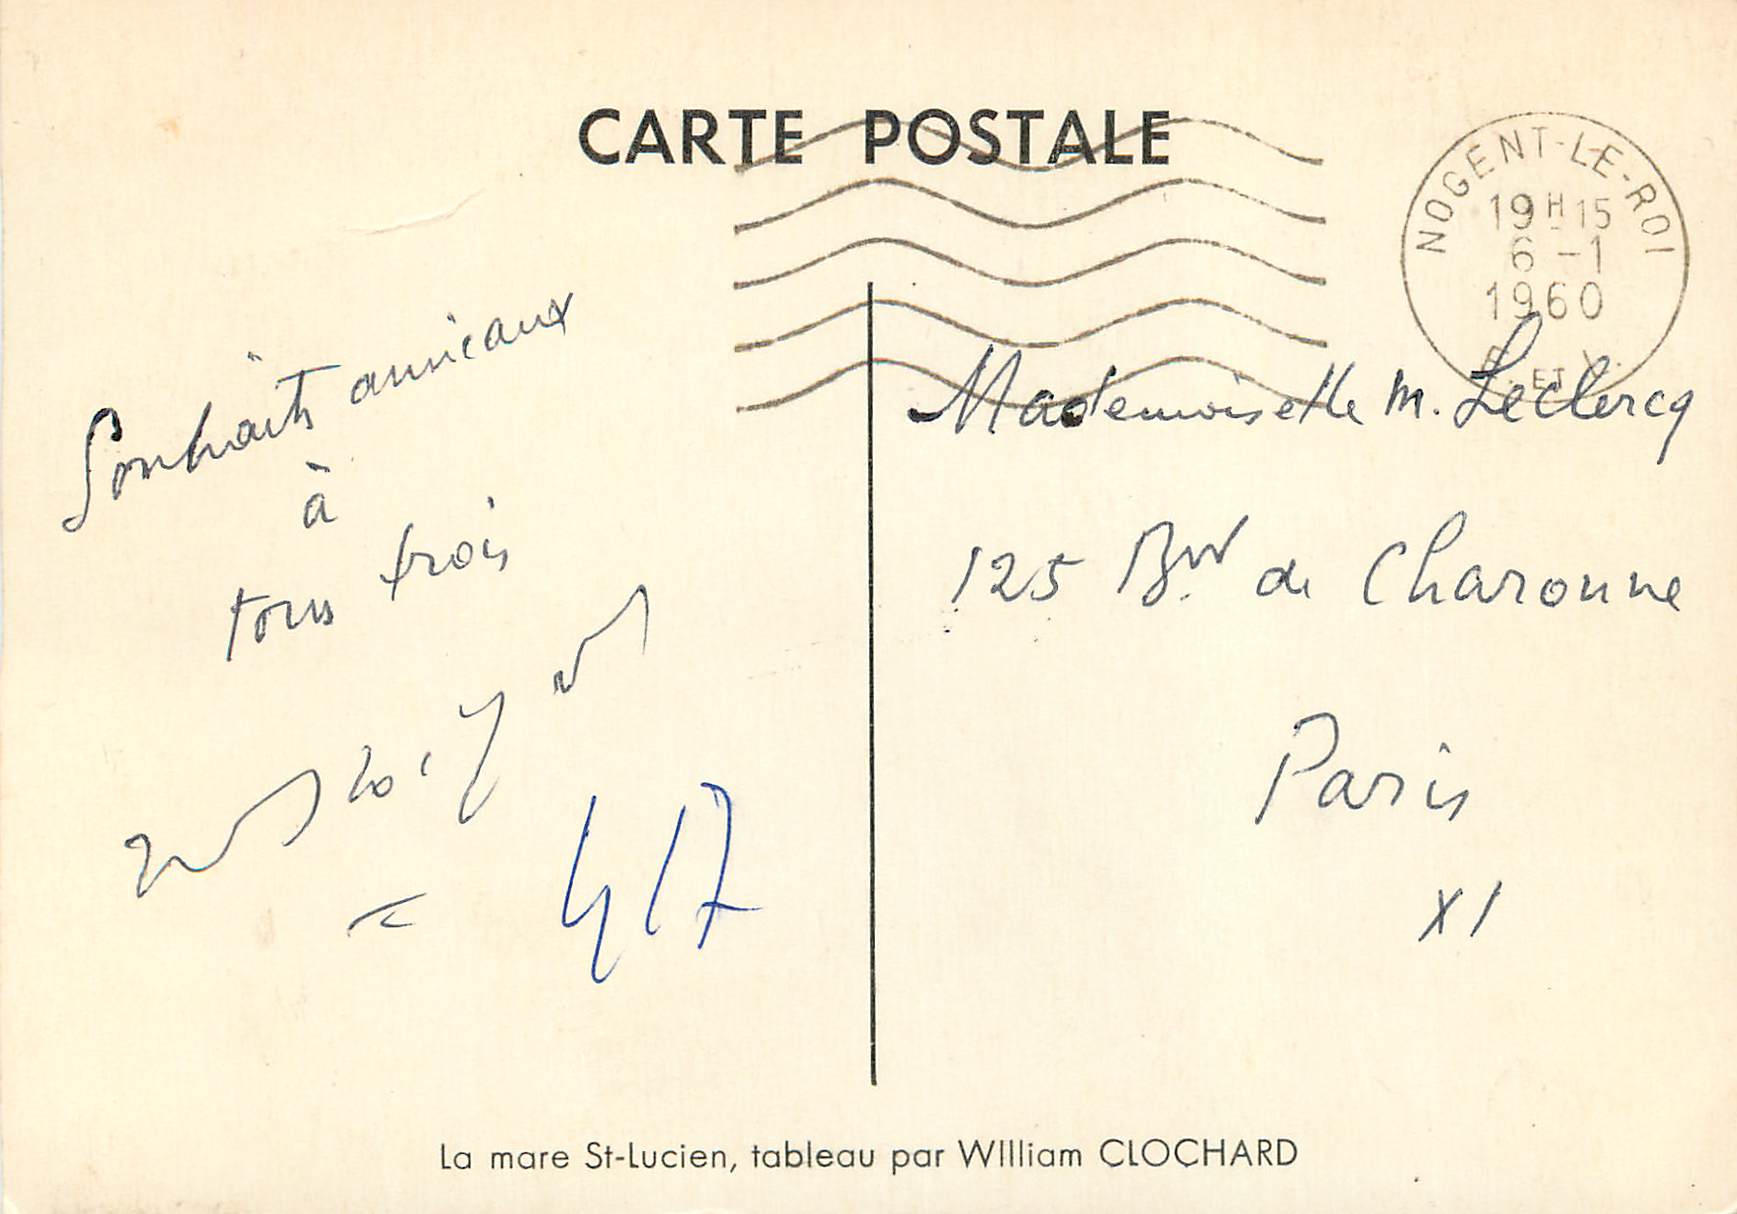 CARTE POSTALE
NOGENT-LE-ROI
19H15
6-1
1960
E. ET L.
Souhaits amicaux
à
tous trois
417
Mademoiselle M. Leclercq
125 Bvd de Charonne
Paris
XI
La mare St-Lucien, tableau par WIlliam CLOCHARD